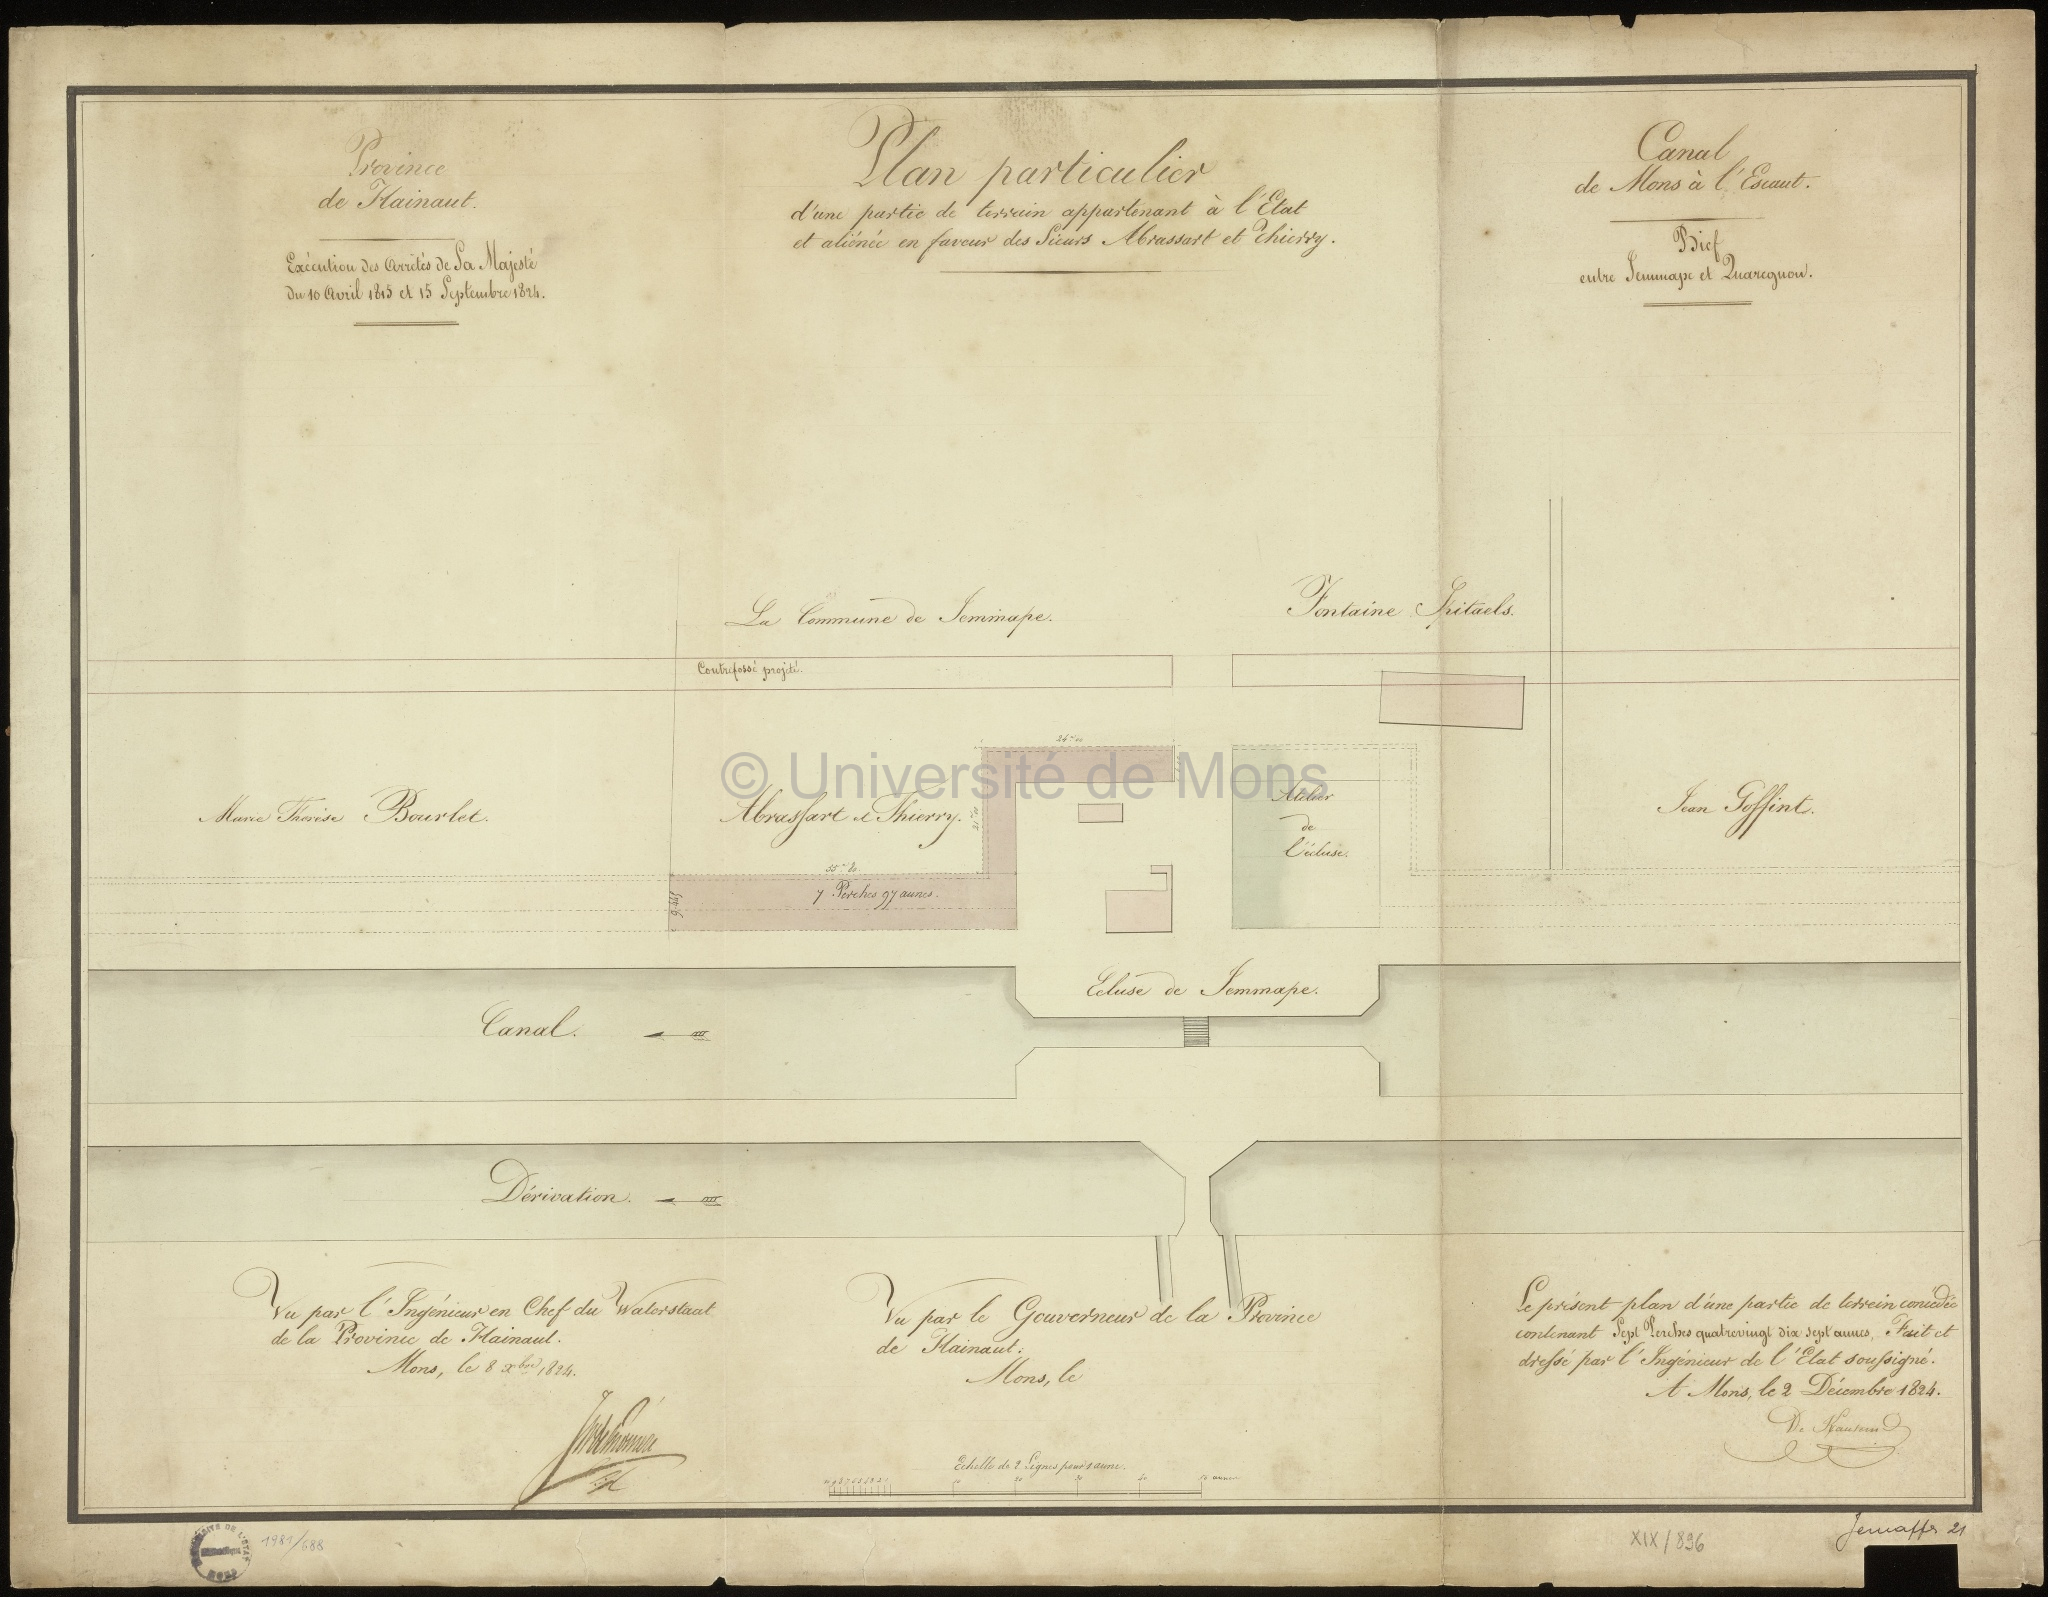 Province
de Hainaut.
Exécution des Arrêtés de Sa Majesté
du 10 Avril 1815 et 15 Septembre 1824.
Plan particulier
d'une partie de terrain appartenant à l'Etat
et aliénée en faveur des Sieurs Abrassart et Thierry.
Canal
de Mons à l'Escaut.
Bief
entre Jemmape et Quaregnon.
La Commune de Jemmape.
Fontaine Spitaels.
Contrefossé projeté.
24 00
© Université de Mons
Marie Thérèse Bourlet.
Abrassart et Thierry.
21 00
Atelier
de
l'écluse.
Jean Goffint.
55 80
7 Perches 97 aunes.
Ecluse de Jemmape.
Canal.
Dérivation.
Vu par l'Ingénieur en Chef du Waterstaat
de la Province de Hainaut.
Mons, le 8 Xbre 1824.
Vu par le Gouverneur de la Province
de Hainaut.
Mons, le
Le présent plan d'une partie de terrein concédée
contenant Sept Perches quatrevingt dix sept aunes, Fait et
dressé par l'Ingénieur de l'Etat soussigné.
A Mons, le 2 Décembre 1824.
Echelle de 2 Lignes pour 1 aune.
10 20 30 40 50 aunes
1981/688
XIX/896
Jemappes 21